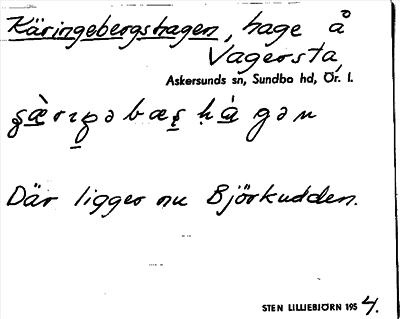 Käringebergshagen, hage å
Vagersta,
Askersunds sn, Sundbo hd, Ör. l.
Där ligger nu Björkudden.
STEN LILLIEBJÖRN 1954.